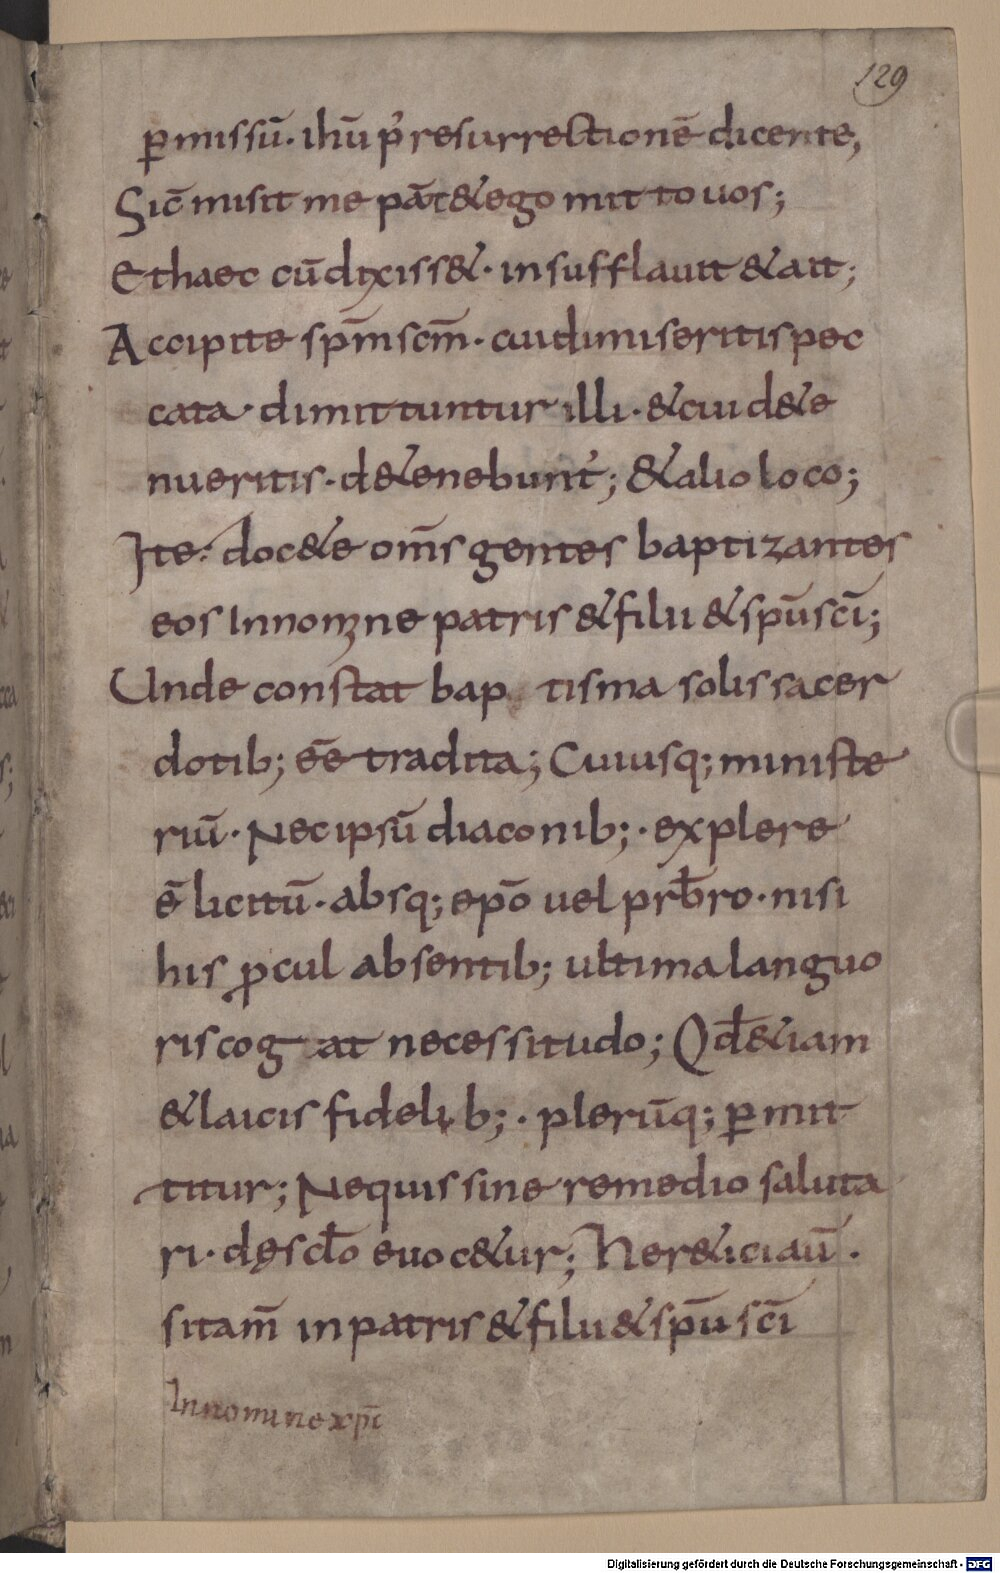 129
ꝑmissū. ihū p᾽ resurrectionē dicente,
Sic̄ misit me pāt & ego mitto uos;
Et haec cū dixiss&. insufflauit & ait;
Accipite sp̄m sc̄m. cui dimiseritis pec
cata. dimittuntur illi. & cui d&e
nueritis. d&enebunt᾽; & alio loco;
Ite. doc&e om̄s gentes baptizantes
eos In nomine patris & filii & sp̄u sc̄i;
Unde constat bap tisma solis sacer
dotib; eē tradita; Cuiusq; ministe
riū. Nec ipsū diaconib;. explere
ē licitū. absq; ep̄o uel prb̄ro. nisi
his ꝓcul absentib; ultima languo
ris cog at necessitudo; Qd̄ &iam
& laicis fidelib;. plerūq; ꝑmit
titur; Ne quis sine remedio saluta
ri. de sc̄lo euoc&ur; Her&ici aū.
si tam̄ in patris & filii & sp̄u sc̄i
In nomine xp̄i
Digitalisierung gefördert durch die Deutsche Forschungsgemeinschaft - DFG